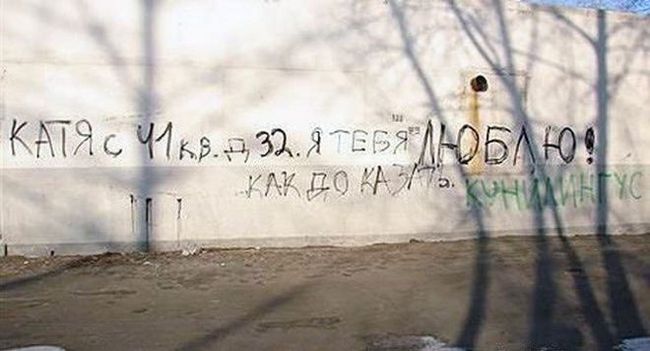 КАТЯ с 41 кв. д 32. Я ТЕБЯ ЛЮБЛЮ!
КАК ДОКАЗАТЬ. КУНИЛИНГУС